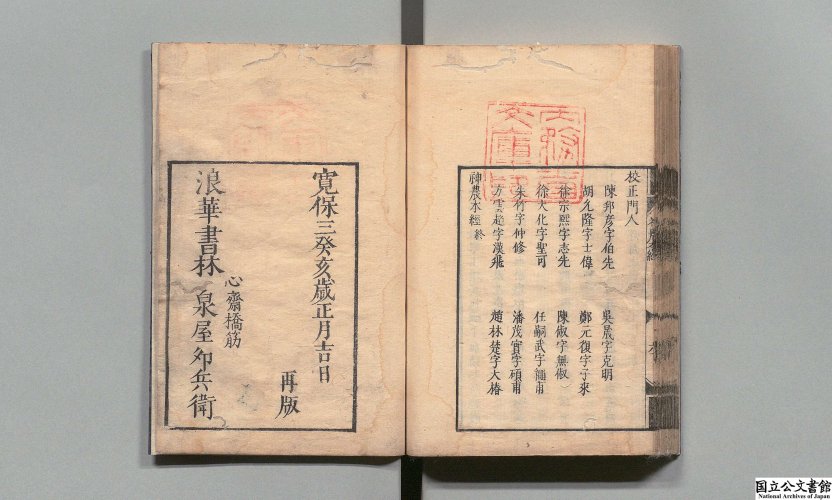 校正門人
陳邦彦字伯先　吳晟字克明
胡九隆字士偉　鄭元復字子來
徐宗熙字志先　陳俶字無俶
徐大化字聖可　任嗣武字繩甫
朱竹字仲修　潘茂實字碩甫
方雲超字漢飛　趙林楚字大椿
神農本經終
寛保三癸亥歳正月吉日
再版
心齋橋筋
浪華書林　泉屋卯兵衛
国立公文書館
National Archives of Japan